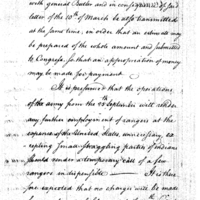 with general Butler and in consequence of his
letter of the 10th of March be also transmitted
at the same time, in order that an estimate may
be prepared of the whole amount and submitted
to Congress, so that an appropriation of money
may be made for payment.
It is presumed that the operations
of the army from the 1st September will render
any further employment of rangers at the
expence of the United States, unnecessary, ex-
cepting small straggling parties of indians
should render a temporary use of a few
rangers indispensible — It is there-
fore expected that no charges will be made